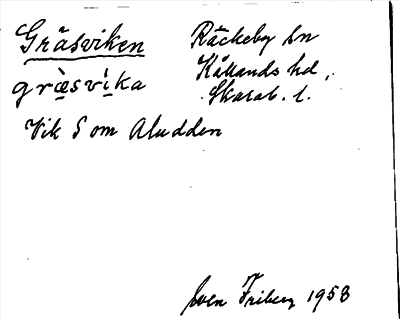 Gräsviken
Råckeby sn
Kållands hd.,
Skarab. l.
græ̀svi̇̀ka
Vik S om Aludden
Sven Friberg 1958